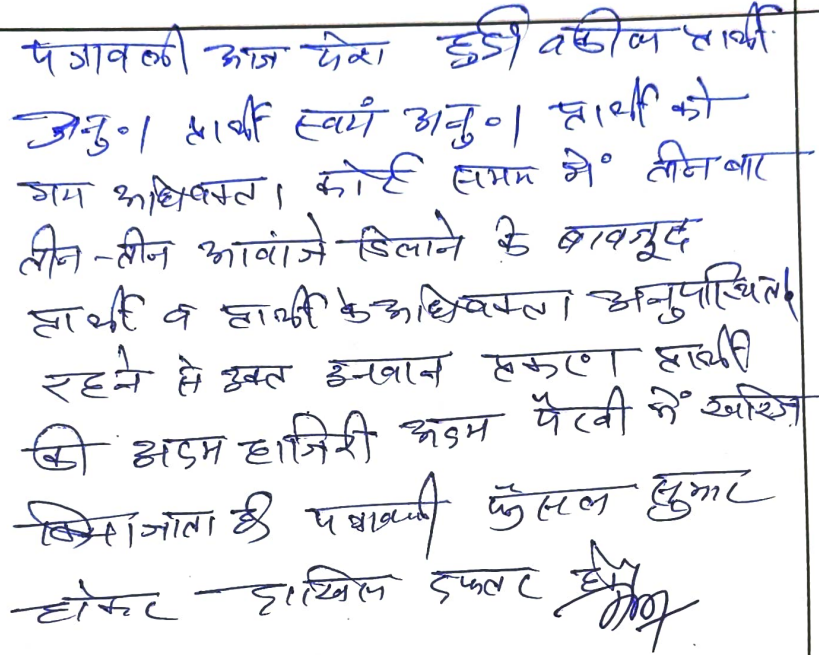 पत्रावली आज पेश हुई। वकील प्रार्थी
अनु०। प्रार्थी स्वयं अनु०। प्रार्थी को
मय अधिवक्ता। कोर्ट समय में तीन बार
तीन-तीन आवांजे दिलाने के बावजूद
प्रार्थी व प्रार्थी के अधिवक्ता अनुपस्थित।
रहने से उक्त उनवान प्रकरण प्रार्थी
की अदम हाजिरी अदम पैरवी में खारिज
किया जाता है। पत्रावली फैसल सुमार
होकर दाखिल दफ्तर हो।